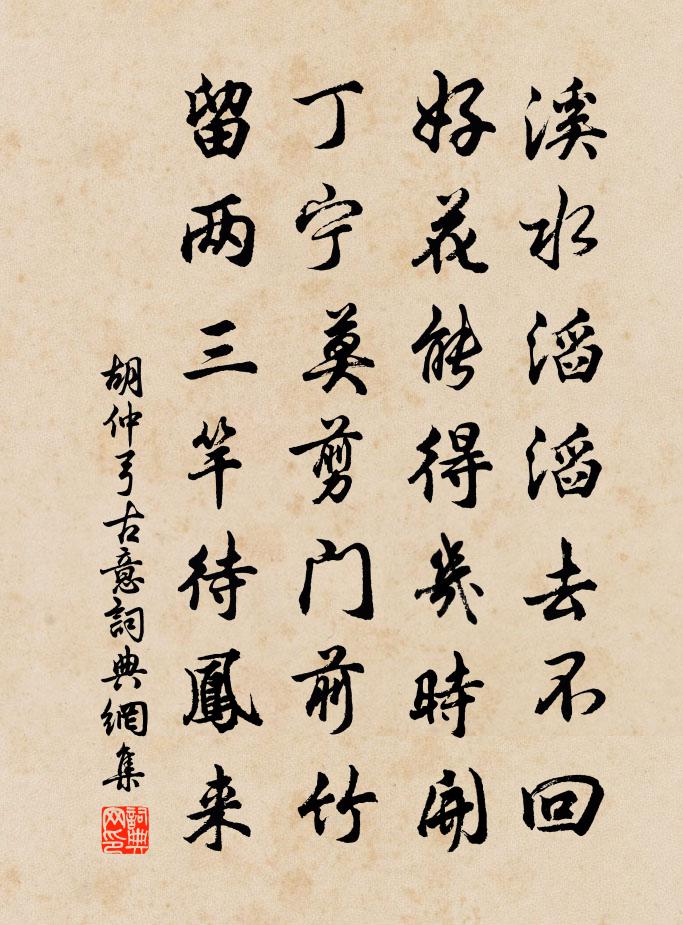 溪水滔滔去不回
好花能得幾時開
丁宁莫剪门前竹
留两三竿待鳳来
胡仲弓古意詞典網集
詞典网印